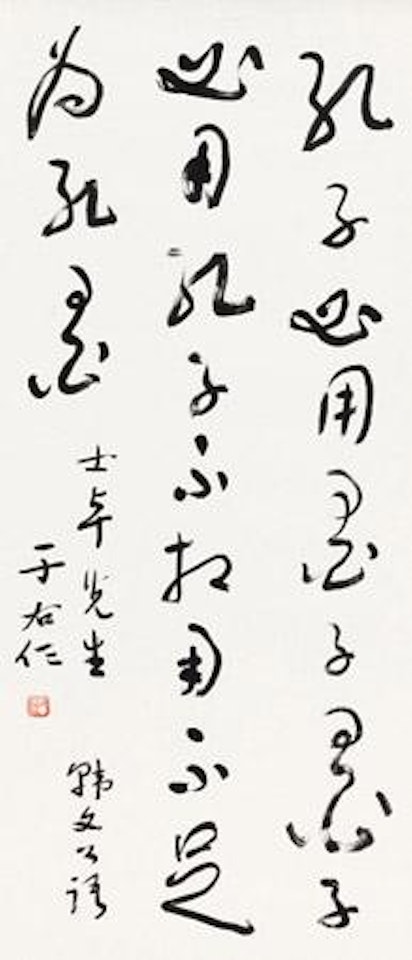 孔子必用墨子墨子
必用孔子不相用不足
为孔墨
士卓先生 韩文公语
于右任